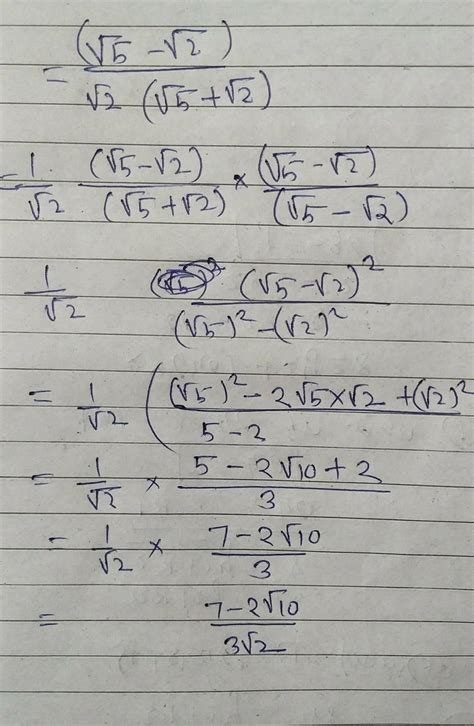 = (√5 - √2) / √2 (√5 + √2)
= 1/√2 (√5 - √2)/(√5 + √2) × (√5 - √2)/(√5 - √2)
1/√2 (√5 - √2)² / (√5)² - (√2)²
= 1/√2 ( (√5)² - 2√5×√2 + (√2)² / 5 - 2
= 1/√2 × 5 - 2√10 + 2 / 3
= 1/√2 × 7 - 2√10 / 3
= 7 - 2√10 / 3√2